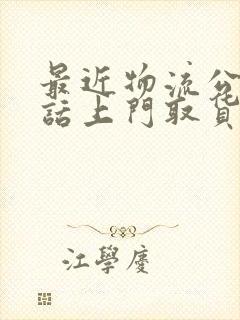 最近物流公
話上門取貨
江學慶